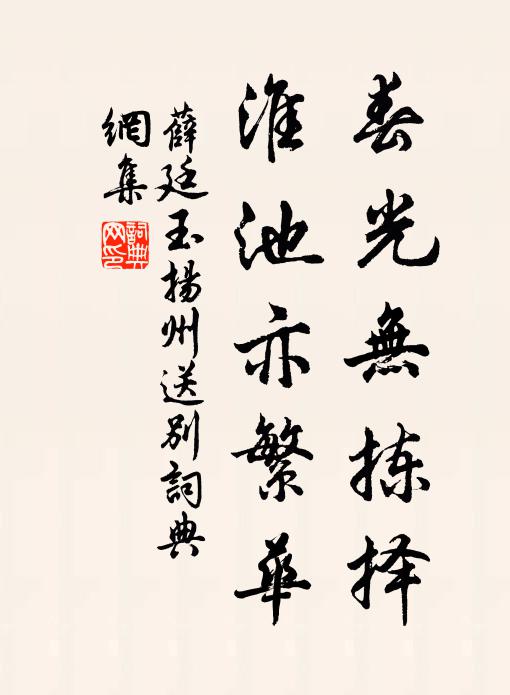 春光無拣择
淮池亦繁華
薛廷玉揚州送别詞典
網集
詞典
网印